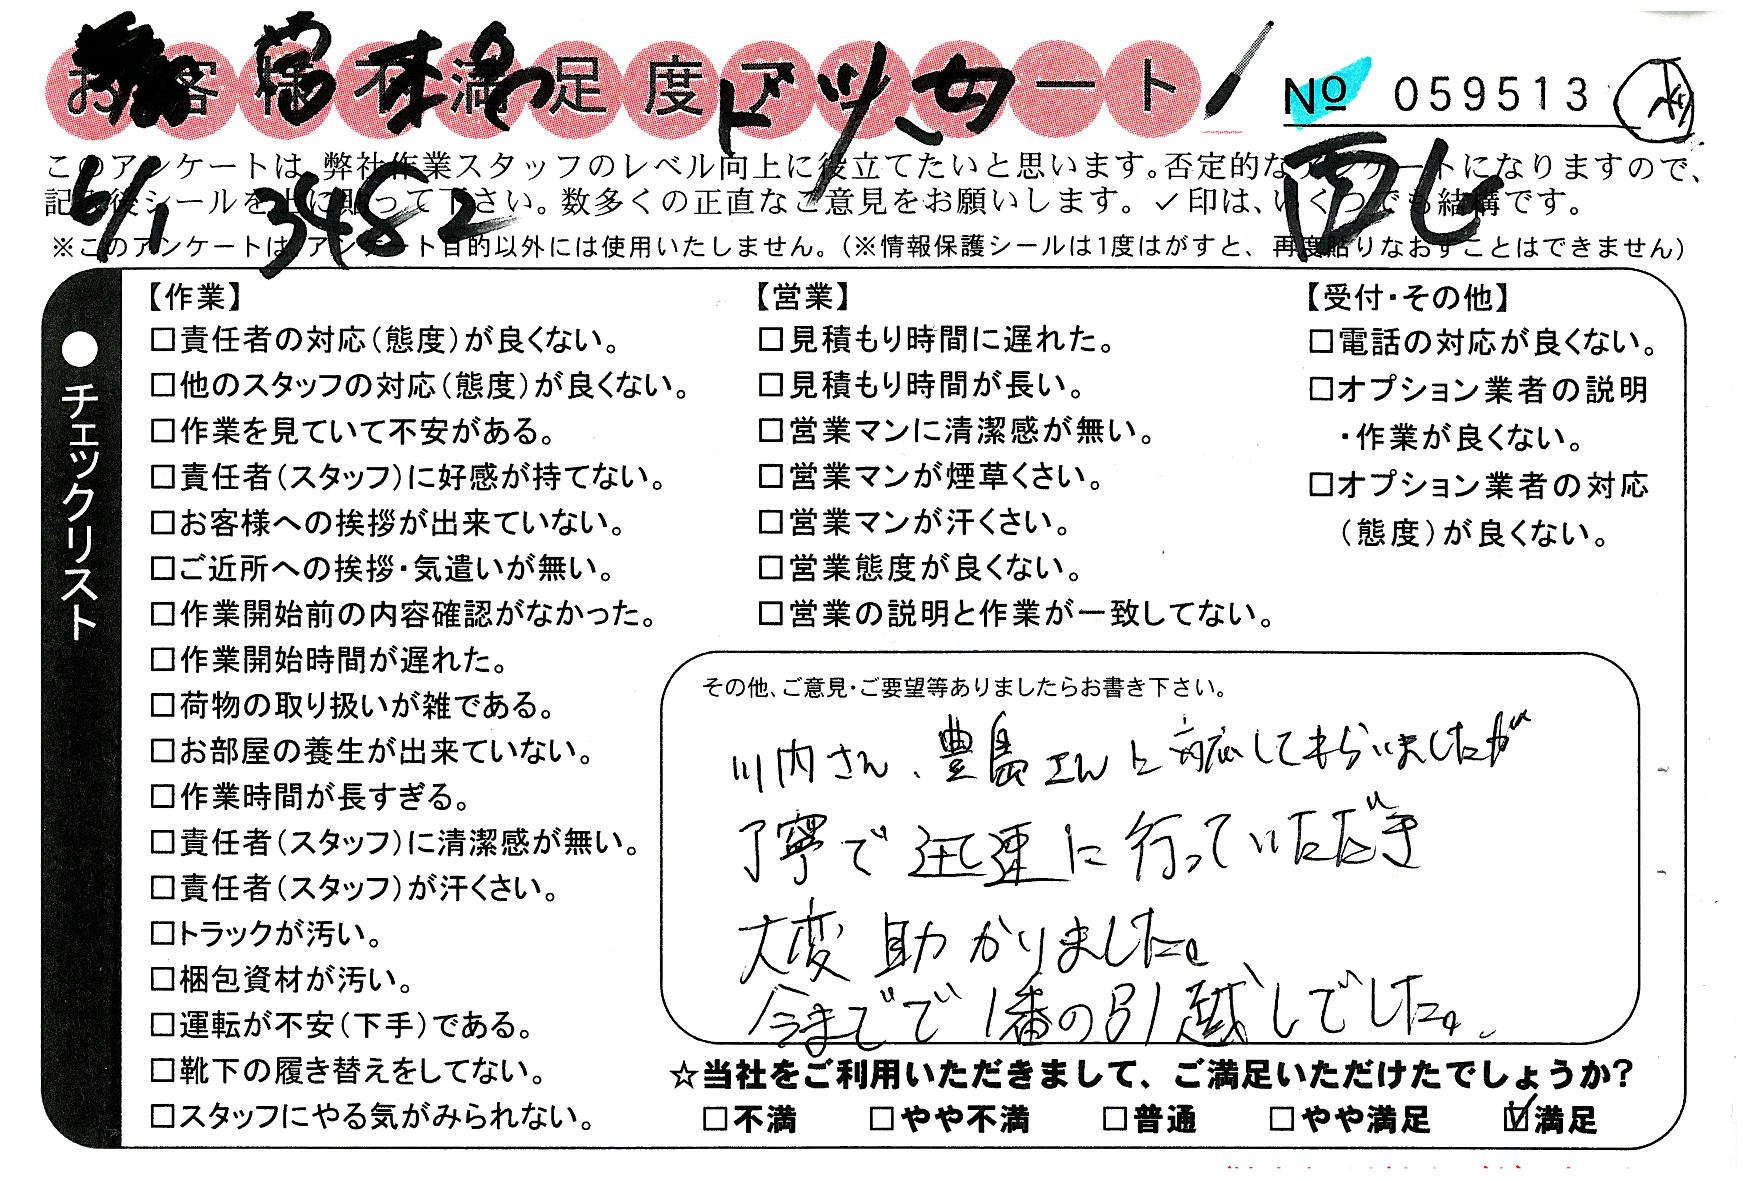 お客様不満足度アンケート
№ 059513
このアンケートは、弊社作業スタッフのレベル向上に役立てたいと思います。否定的なアンケートになりますので、
記入後シールを上に貼って下さい。数多くの正直なご意見をお願いします。✓印は、いくつでも結構です。
4/1 3482
※このアンケートは、アンケート目的以外には使用いたしません。(※情報保護シールは1度はがすと、再度貼りなおすことはできません)
●チェックリスト
【作業】
□責任者の対応(態度)が良くない。
□他のスタッフの対応(態度)が良くない。
□作業を見ていて不安がある。
□責任者(スタッフ)に好感が持てない。
□お客様への挨拶が出来ていない。
□ご近所への挨拶・気遣いが無い。
□作業開始前の内容確認がなかった。
□作業開始時間が遅れた。
□荷物の取り扱いが雑である。
□お部屋の養生が出来ていない。
□作業時間が長すぎる。
□責任者(スタッフ)に清潔感が無い。
□責任者(スタッフ)が汗くさい。
□トラックが汚い。
□梱包資材が汚い。
□運転が不安(下手)である。
□靴下の履き替えをしてない。
□スタッフにやる気がみられない。
【営業】
□見積もり時間に遅れた。
□見積もり時間が長い。
□営業マンに清潔感が無い。
□営業マンが煙草くさい。
□営業マンが汗くさい。
□営業態度が良くない。
□営業の説明と作業が一致してない。
【受付・その他】
□電話の対応が良くない。
□オプション業者の説明
・作業が良くない。
□オプション業者の対応
(態度)が良くない。
その他、ご意見・ご要望等ありましたらお書き下さい。
川内さん、豊島さんと対応してもらいましたが
丁寧で迅速に行っていただき
大変助かりました。
今までで1番の引越しでした。
☆当社をご利用いただきまして、ご満足いただけたでしょうか?
□不満 □やや不満 □普通 □やや満足 ☑満足